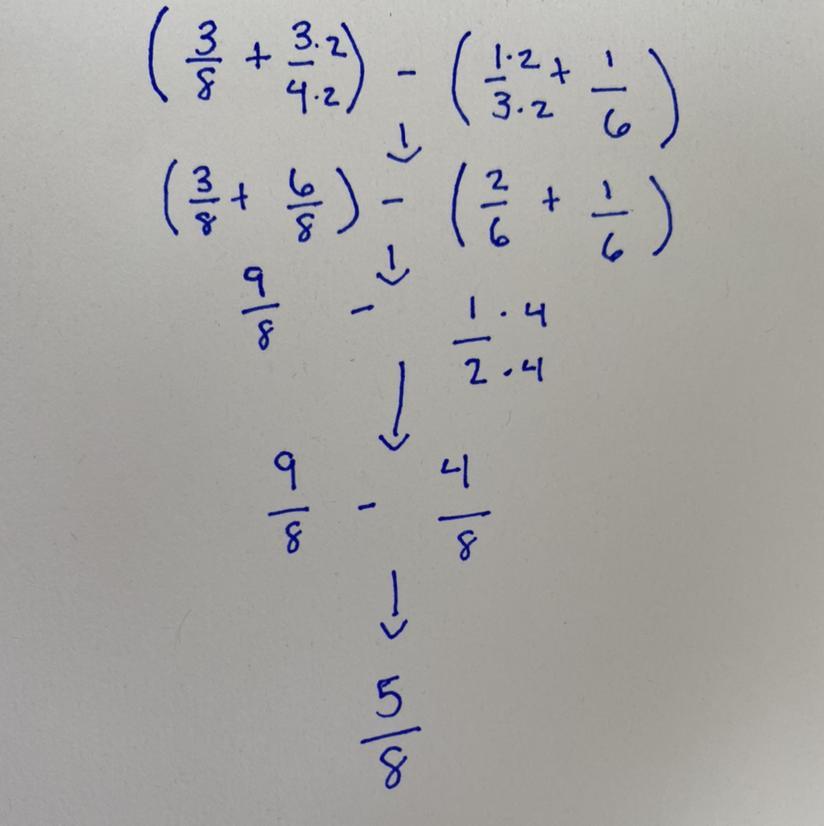 (3/8 + 3·2/4·2) - (1·2/3·2 + 1/6)
↓
(3/8 + 6/8) - (2/6 + 1/6)
↓
9/8 - 1·4/2·4
↓
9/8 - 4/8
↓
5/8